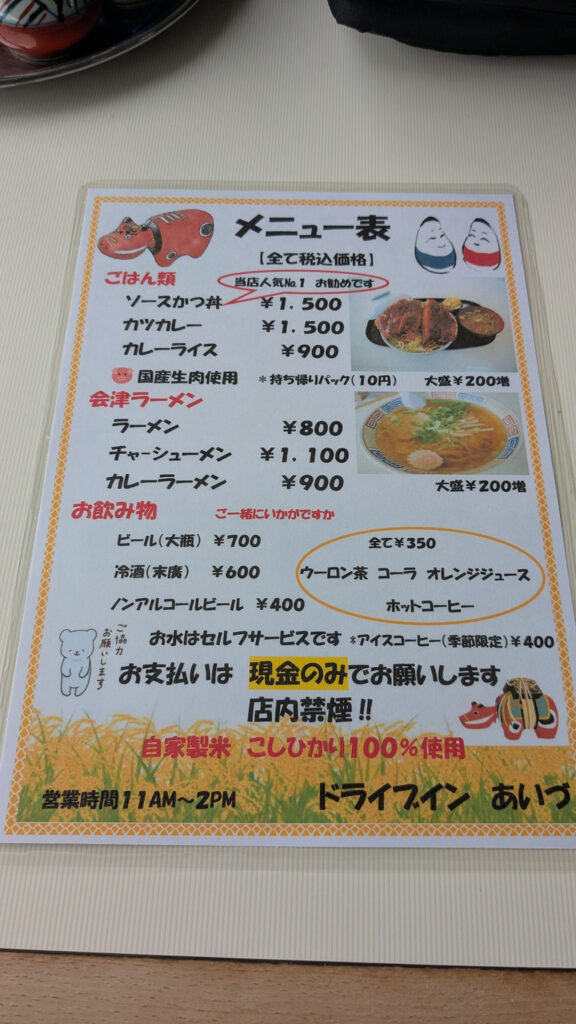 メニュー表
【全て税込価格】
ごはん類
当店人気No.1 お勧めです
ソースかつ丼 ￥1.500
カツカレー ￥1.500
カレーライス ￥900
国産生肉使用 *持ち帰りパック(10円) 大盛￥200増
会津ラーメン
ラーメン ￥800
チャーシューメン ￥1.100
カレーラーメン ￥900
大盛￥200増
お飲み物 ご一緒にいかがですか
ビール(大瓶) ￥700
冷酒(末廣) ￥600
ノンアルコールビール ￥400
全て￥350
ウーロン茶 コーラ オレンジジュース
ホットコーヒー
ご協力
お願いします
お水はセルフサービスです *アイスコーヒー(季節限定)￥400
お支払いは 現金のみでお願いします
店内禁煙!!
自家製米 こしひかり100%使用
営業時間11AM～2PM ドライブイン あいづ